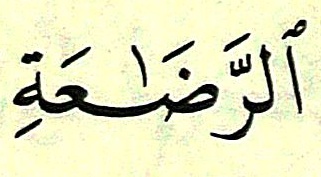 ٱلرَّضَٰعَةِ